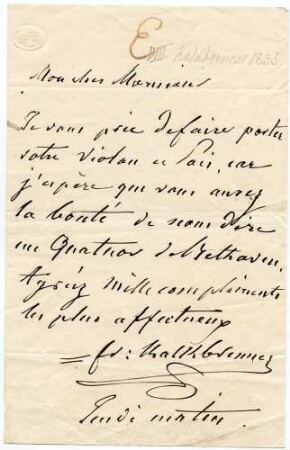 E
VIII Kalkbrenner 1835.
Mon cher Mormans
Je vous prie de faire porter
votre violon ce Soir, car
j'espère que vous aurez
la bonté de nous dire
un Quatuor de Bethoven.
Agréez mille compliments
les plus affectueux
Fr: Kalkbrenner
Jeudi matin